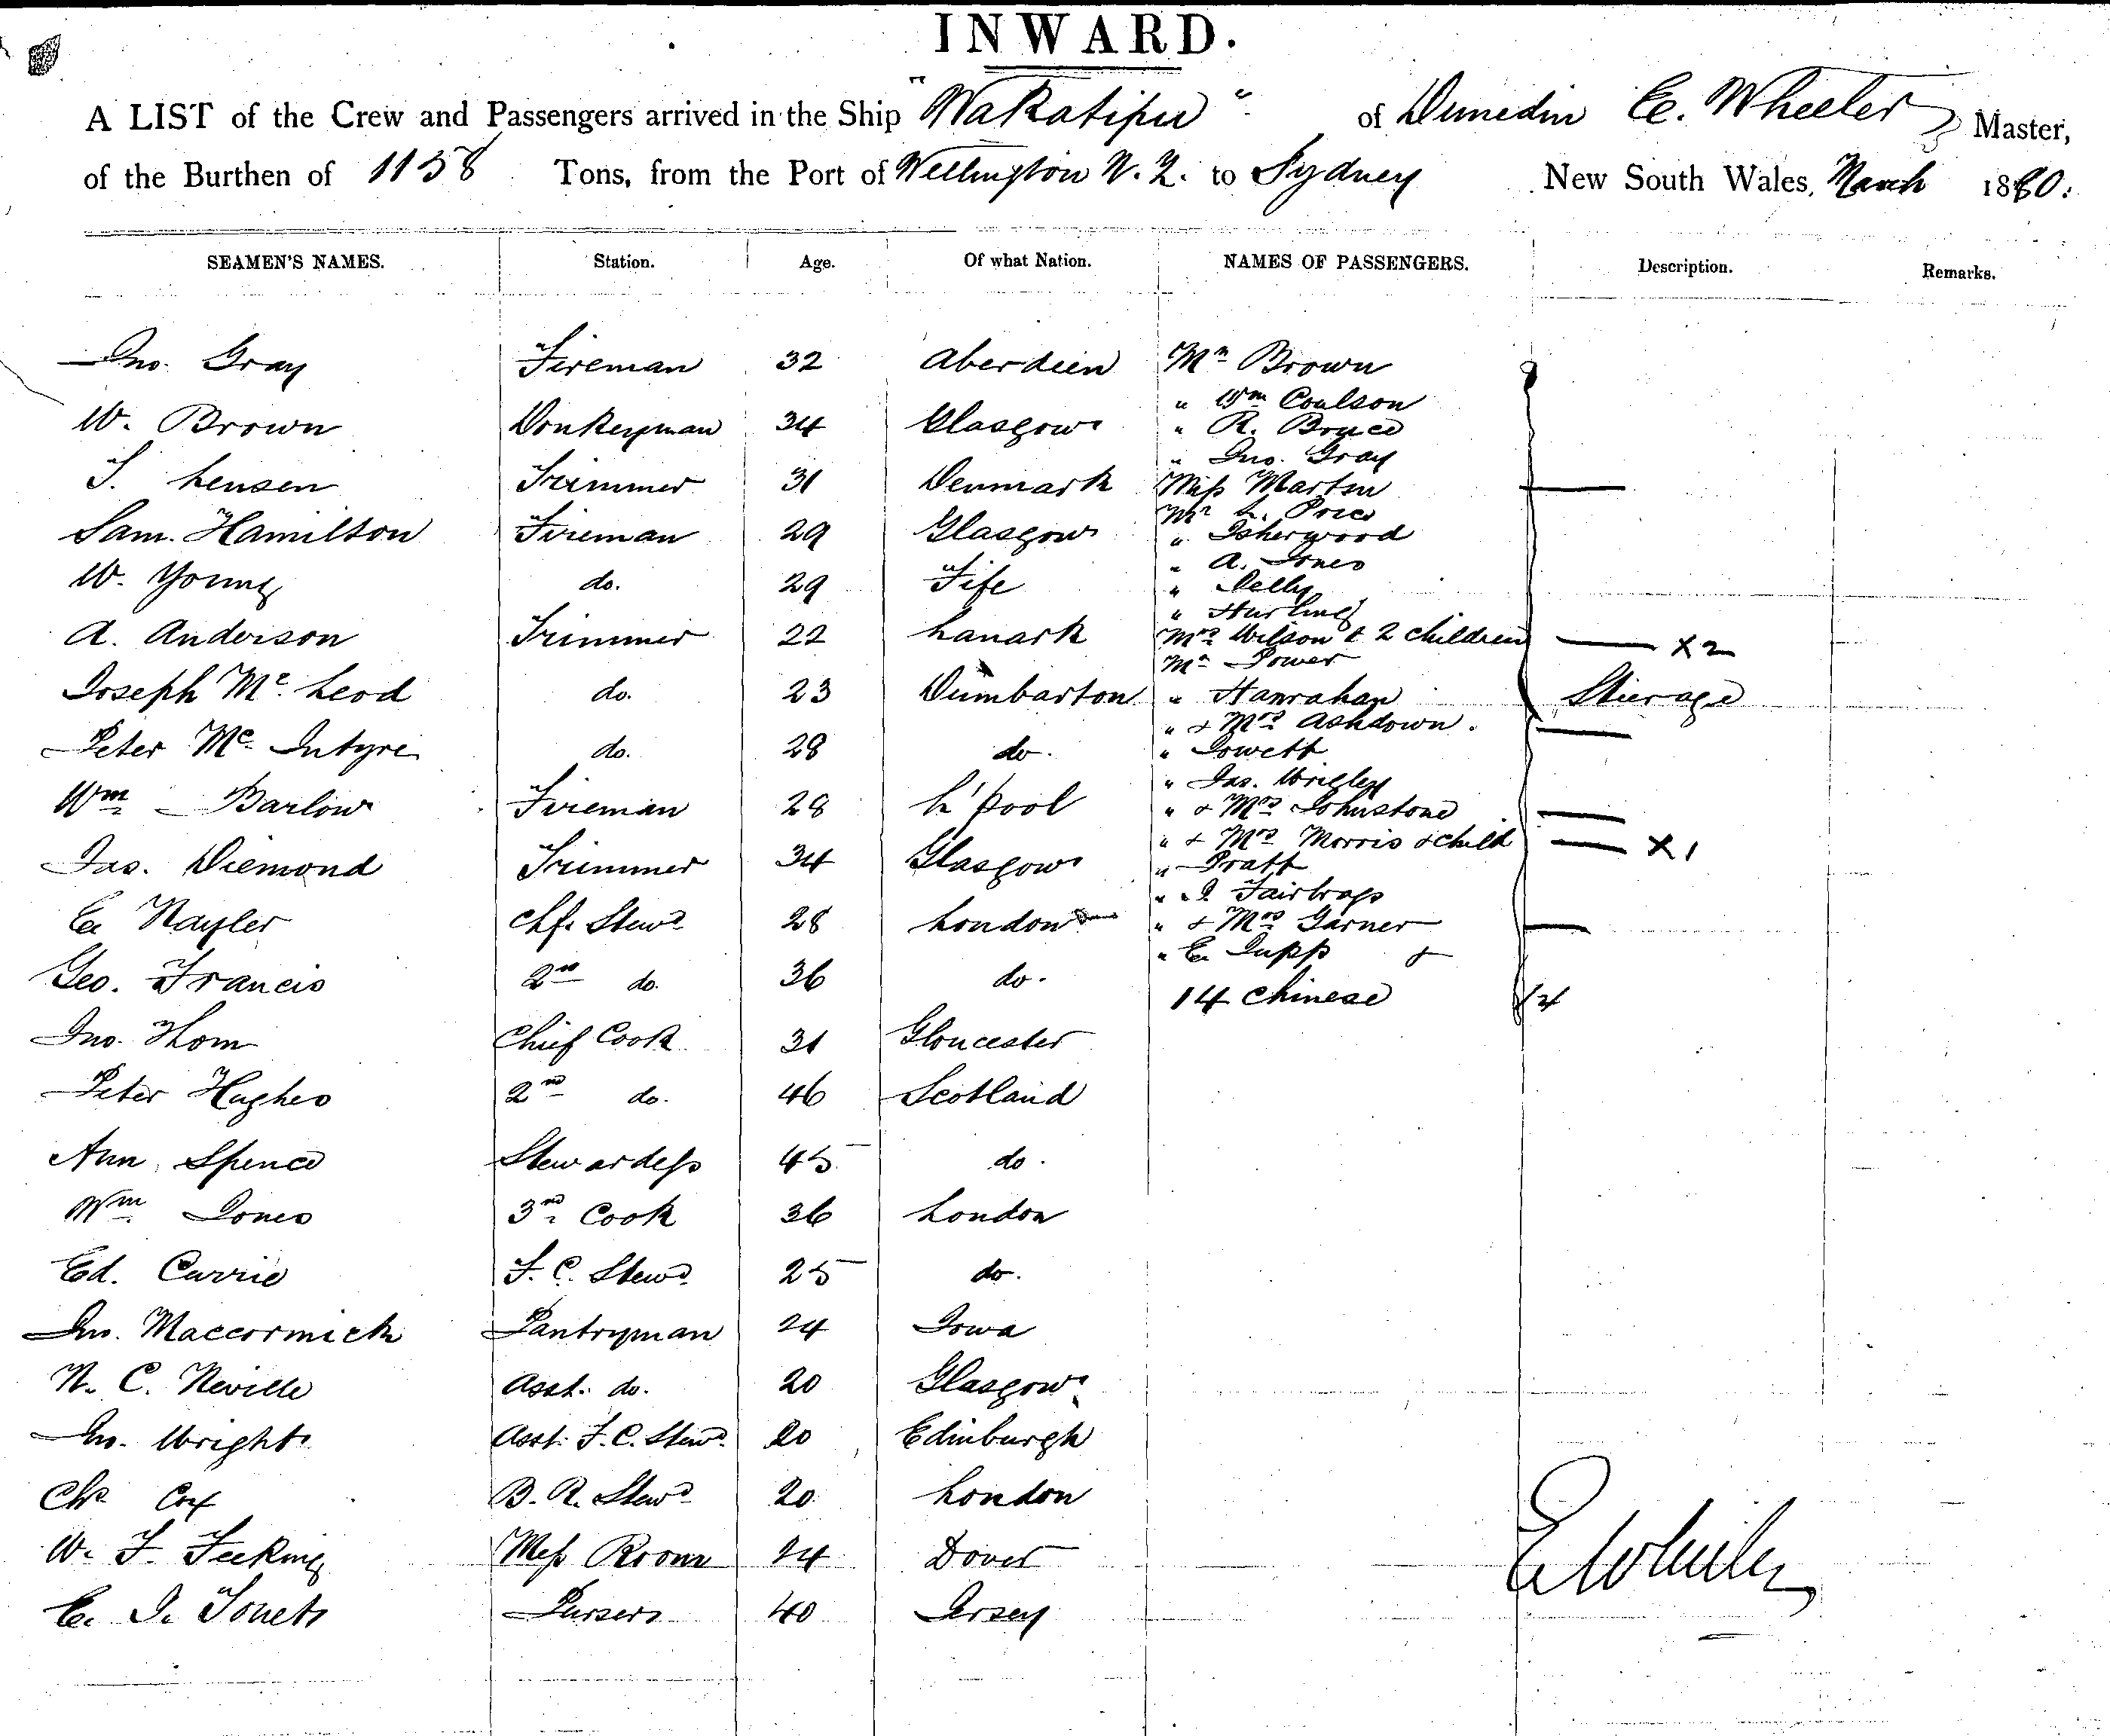 INWARD.
A LIST of the Crew and Passengers arrived in the Ship "Wakatipu" of Dunedin E. Wheeler Master,
of the Burthen of 1158 Tons, from the Port of Wellington N.Z. to Sydney New South Wales, March 1880.
SEAMEN'S NAMES. Station. Age. Of what Nation. NAMES OF PASSENGERS. Description. Remarks.
Jno. Gray Fireman 32 Aberdeen Mr Brown
" Wm Coulson
W. Brown Donkeyman 34 Glasgow " R. Bruce
" Jno. Gray
J. Lensen Trimmer 31 Denmark Miss Martin
Mr L. Price
Sam. Hamilton Fireman 29 Glasgow " Isherwood
" A. Jones
W. Young do. 29 Fife " Kelly
" Hurling
A. Anderson Trimmer 22 Lanark Mrs Wilson & 2 children X 2
Mr Power
Joseph Mc. Leod do. 23 Dumbarton " Hanrahan Steerage
" & Mrs Ashdown.
Peter Mc. Intyre do. 28 do. " Jowett
" Jas. Wrigley
Wm Barlow Fireman 28 L'pool " & Mrs Johnstone
" & Mrs Morris & child X 1
Jas. Diemond Trimmer 34 Glasgow " Pratt
" J. Fairbrass
E. Nayler Chf. Stewd 28 London " & Mrs Garner
" E. Jupp &
Geo. Francis 2nd do. 36 do.
14 Chinese 14
Jno. Thom Chief Cook 31 Gloucester
Peter Hughes 2nd do. 46 Scotland
Ann Spence Stewardess 45 do.
Wm Jones 3rd Cook 36 London
Ed. Currie F. C. Stewd 25 do.
Jno. Maccormick Pantryman 24 Iowa
N. C. Neville Asst. do. 20 Glasgow
Jno. Wright Asst. F. C. Stewd. 20 Edinburgh
Chs Cox B. R. Stewd 20 London
W. F. Feeking Mess Room 14 Dover
E. J. Touet Purser 40 Jersey
E Wheeler